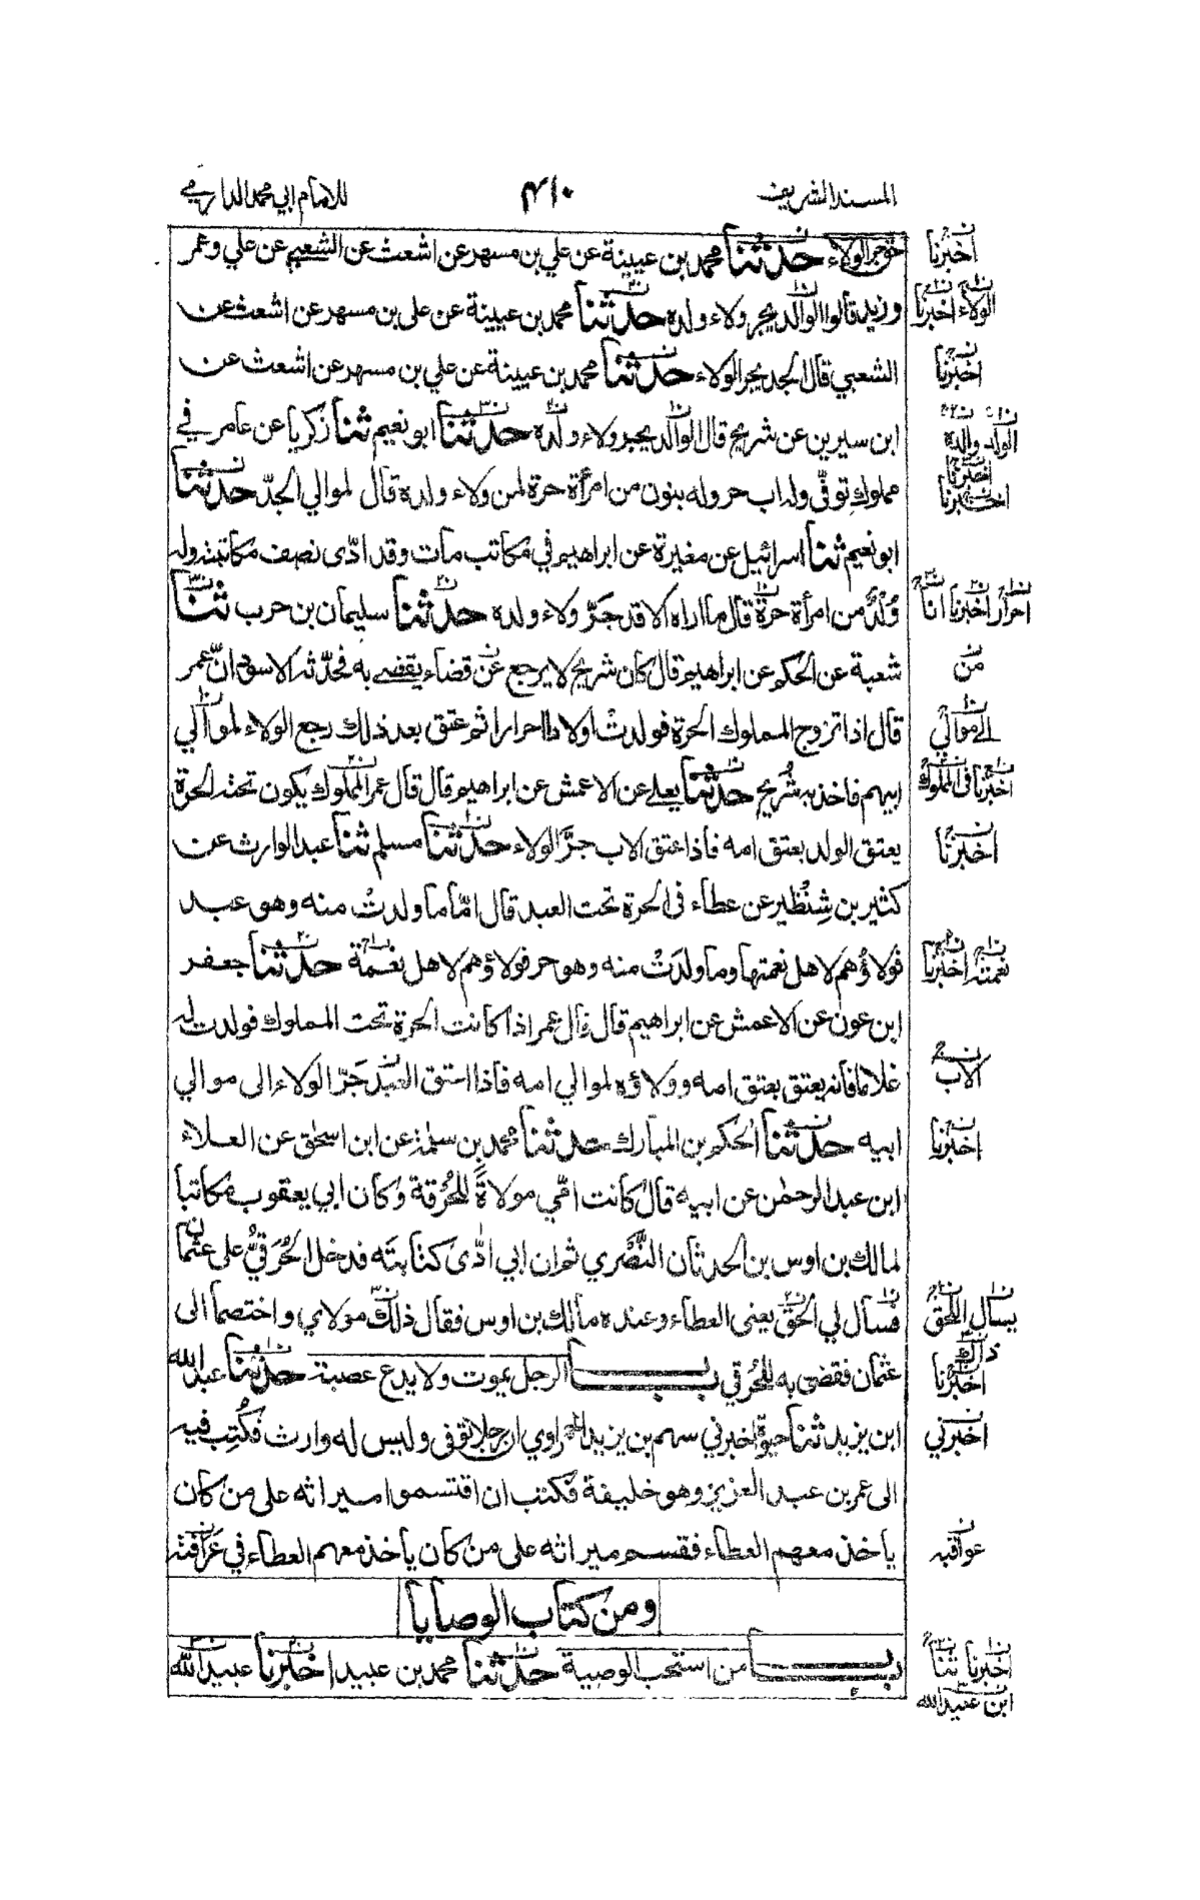 المسند الشريف ٤١٠ للامام ابي محمد الدارمي
حق جر الولاء حدثنا محمد بن عيينة عن علي بن مسهر عن اشعث عن الشعبي عن علي وعمر
وزيد قالوا الوالد يجر ولاء ولده حدثنا محمد بن عيينة عن علي بن مسهر عن اشعث عن
الشعبي قال الجد يجر الولاء حدثنا محمد بن عيينة عن علي بن مسهر عن اشعث عن
ابن سيرين عن شريح قال الوالد يجر ولاء ولده حدثنا ابو نعيم ثنا زكريا عن عامر في
مملوكٍ توفّي وله اب حر وله بنون من امرأة حرة لمن ولاء ولده قال لموالي الجدّ حدثنا
ابو نعيم ثنا اسرائيل عن مغيرة عن ابراهيم في مكاتب مات وقد ادّى نصف مكاتبته وله
وُلْدٌ من امرأة حرة قال ما اراه الا قد جَرَّ ولاء ولده حدثنا سليمان بن حرب ثنا
شعبة عن الحكم عن ابراهيم قال كان شريح لا يرجع عن قضاء يقضي به فحدّثه الاسود انّ عمر
قال اذا تزوج المملوك الحرة فولدتْ اولادا احرارا ثم عتق بعد ذلك رجع الولاء لموالي
ابيهم فاخذ به شُريح حدثنا يعلى عن الاعمش عن ابراهيم قال قال عمر المملوك يكون تحته الحرة
يعتق الولد بعتق امه فاذا عتق الاب جرَّ الولاء حدثنا مسلم ثنا عبد الوارث عن
كثير بن شِنْظير عن عطاء فى الحرة تحت العبد قال امّا ما ولدتْ منه وهو عبد
فولاؤهم لاهل نعمتها وما ولدَتْ منه وهو حر فولاؤهم لاهل نعمة حدثنا جعفر
ابن عون عن الاعمش عن ابراهيم قال قال عمر اذا كانت الحرة تحت المملوك فولدت له
غلاما فانه يعتق بعتق امه وولاؤه لموالي امه فاذا استق العبد جَرّ الولاء الى موالي
ابيه حدثنا الحكم بن المبارك حدثنا محمد بن سلمة عن ابن اسحق عن العلاء
ابن عبد الرحمن عن ابيه قال كانت امّي مولاةً للحُرقة وكان ابي يعقوب مكاتبا
لمالك بن اوس بن الحدثان النَّصْري ثم ان ابي ادّى كتابتَه فدخل الحُرَقيُّ على عثمان
فسأل لي الحق يعنى العطاء وعنده مالك بن اوس فقال ذلك مولاي واختصما الى
عثمان فقضى به للحُرقي باب الرجل يموت ولا يدع عصبة حدثنا عبد الله
ابن يزيد ثنا حيوة اخبرني سهم بن يزيد الحمراوي ان رجلا توفى وليس له وارث فكُتِب فيه
الى عمر بن عبد العزيز وهو خليفة فكتب ان اقتسموا ميراثه على من كان
ياخذ معهم العطاء فقسم ميراثه على من كان ياخذ معهم العطاء في عرافته
ومن كتاب الوصايا
باب من استحب الوصية حدثنا محمد بن عبيد اخبرنا عبيد الله
اخبرنا
الولاء اخبرنا
اخبرنا
الولد والده
اخبرنا
اخبرنا
احرار اخبرنا انا
من
الى موالي
اخبرنا فى المملوك
اخبرنا
نعمته اخبرنا
الاب
اخبرنا
يسأل اللحق
ذاك
اخبرنا
اخبرني
عواقبه
اخبرنا ثنا
ابن عبيد الله